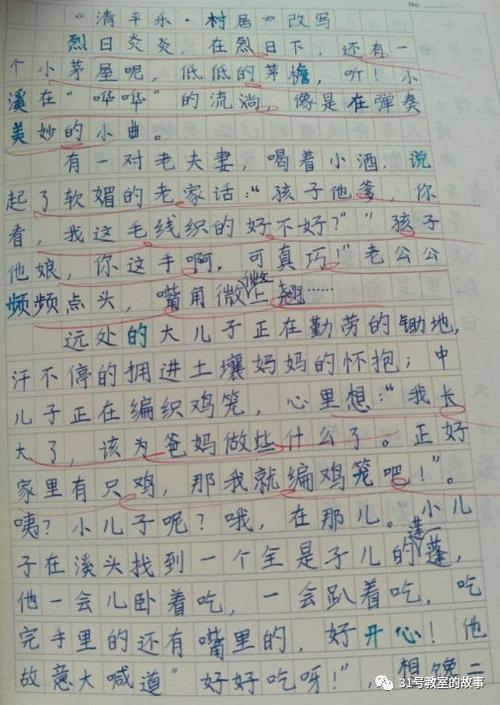 No.
《清平乐·村居》改写
烈日炎炎，在烈日下，还有一
个小茅屋呢，低低的茅檐，听！小
溪在“哗哗”的流淌，像是在弹奏
美妙的小曲。
有一对老夫妻，喝着小酒，说
起了软媚的老家话：“孩子他爹，你
看，我这毛线织的好不好？”“孩子
他娘，你这手啊，可真巧！”老公公
频频点头，嘴角微微上翘……
远处的大儿子正在勤劳的锄地，
汗不停的拥进土壤妈妈的怀抱；中
儿子正在编织鸡笼，心里想：“我长
大了，该为爸妈做些什么了。正好
家里有只鸡，那我就编鸡笼吧！”。
咦？小儿子呢？哦，在那儿。小儿
子在溪头找到一个全是子儿的莲蓬，
他一会儿卧着吃，一会趴着吃，吃
完手里的还有嘴里的，好开心！他
故意大喊道“好好吃呀！”，想馋二
31号教室的故事